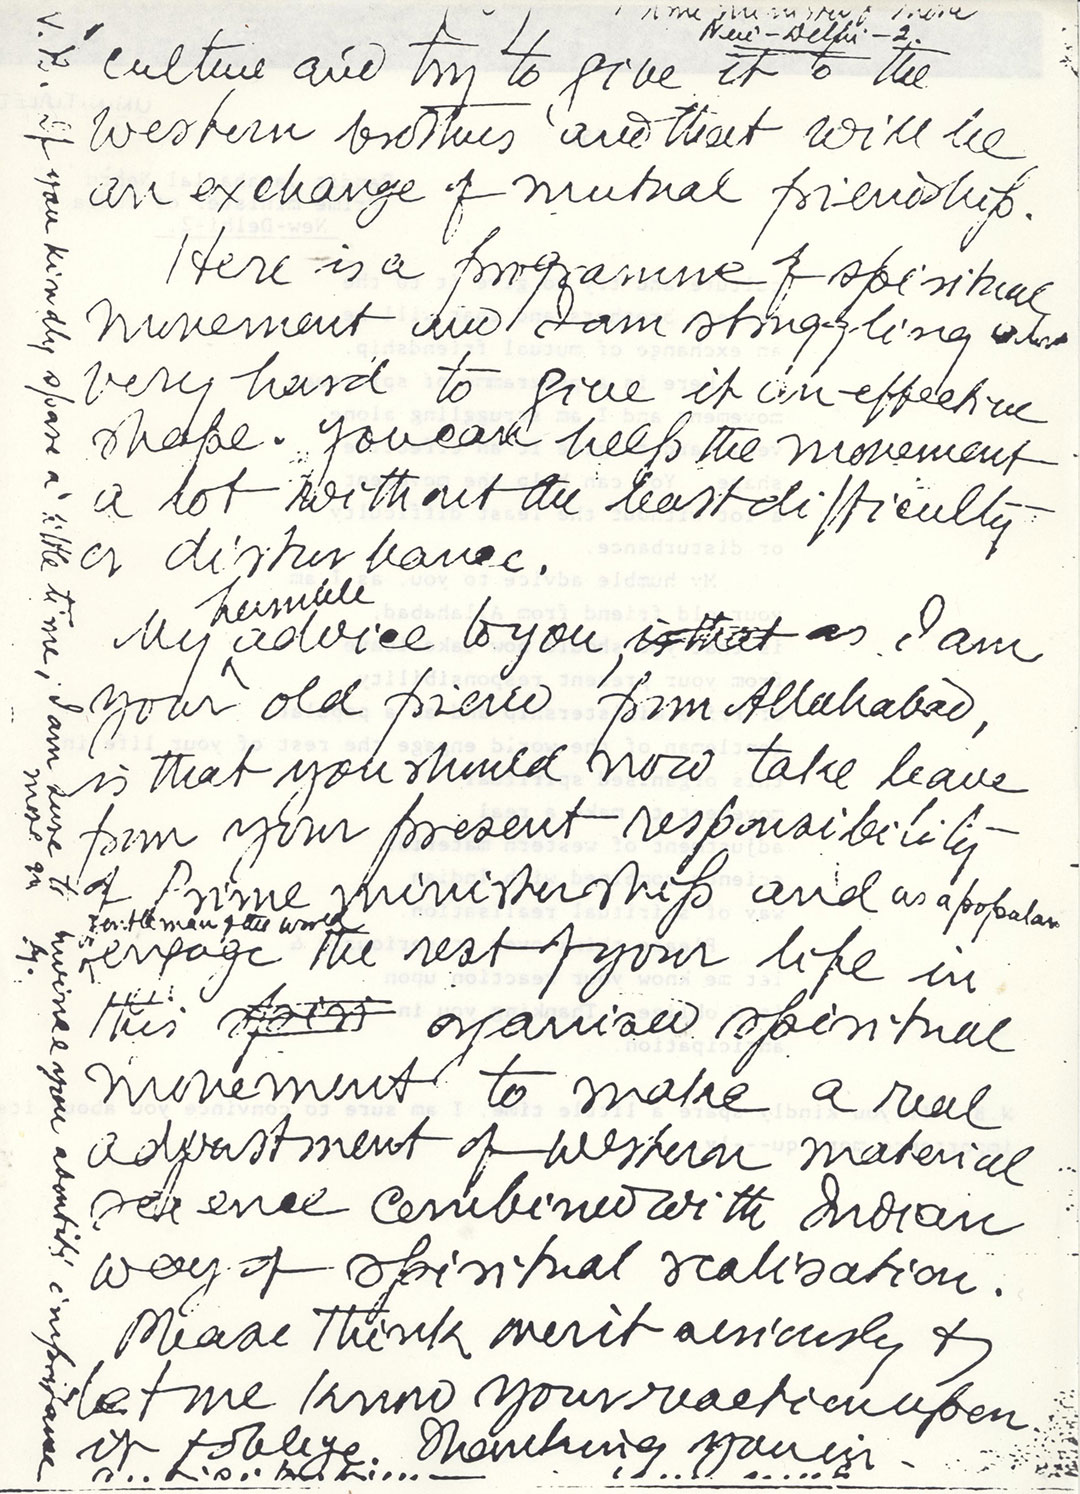 Prime Minister of India
New-Delhi-2.
culture and try to give it to the
western brothers and that will be
an exchange of mutual friendship.
Here is a programme of spiritual
movement and I am struggling alone
very hard to give it an effective
shape. You can help the movement
a lot without the least difficulty
or disturbance.
humble
My advice to you, is that as I am
your old friend from Allahabad,
is that you should now take leave
from your present responsibility
of Prime ministership and as a popular
gentleman of the world
engage the rest of your life in
this spiri organised spiritual
movement to make a real
adjustment of western material
science combined with Indian
way of spiritual realisation.
Please think over it seriously &
let me know your reaction upon
it & oblige. Thanking you in
If you kindly spare a little time, I am sure to convince you about its importance
more qu